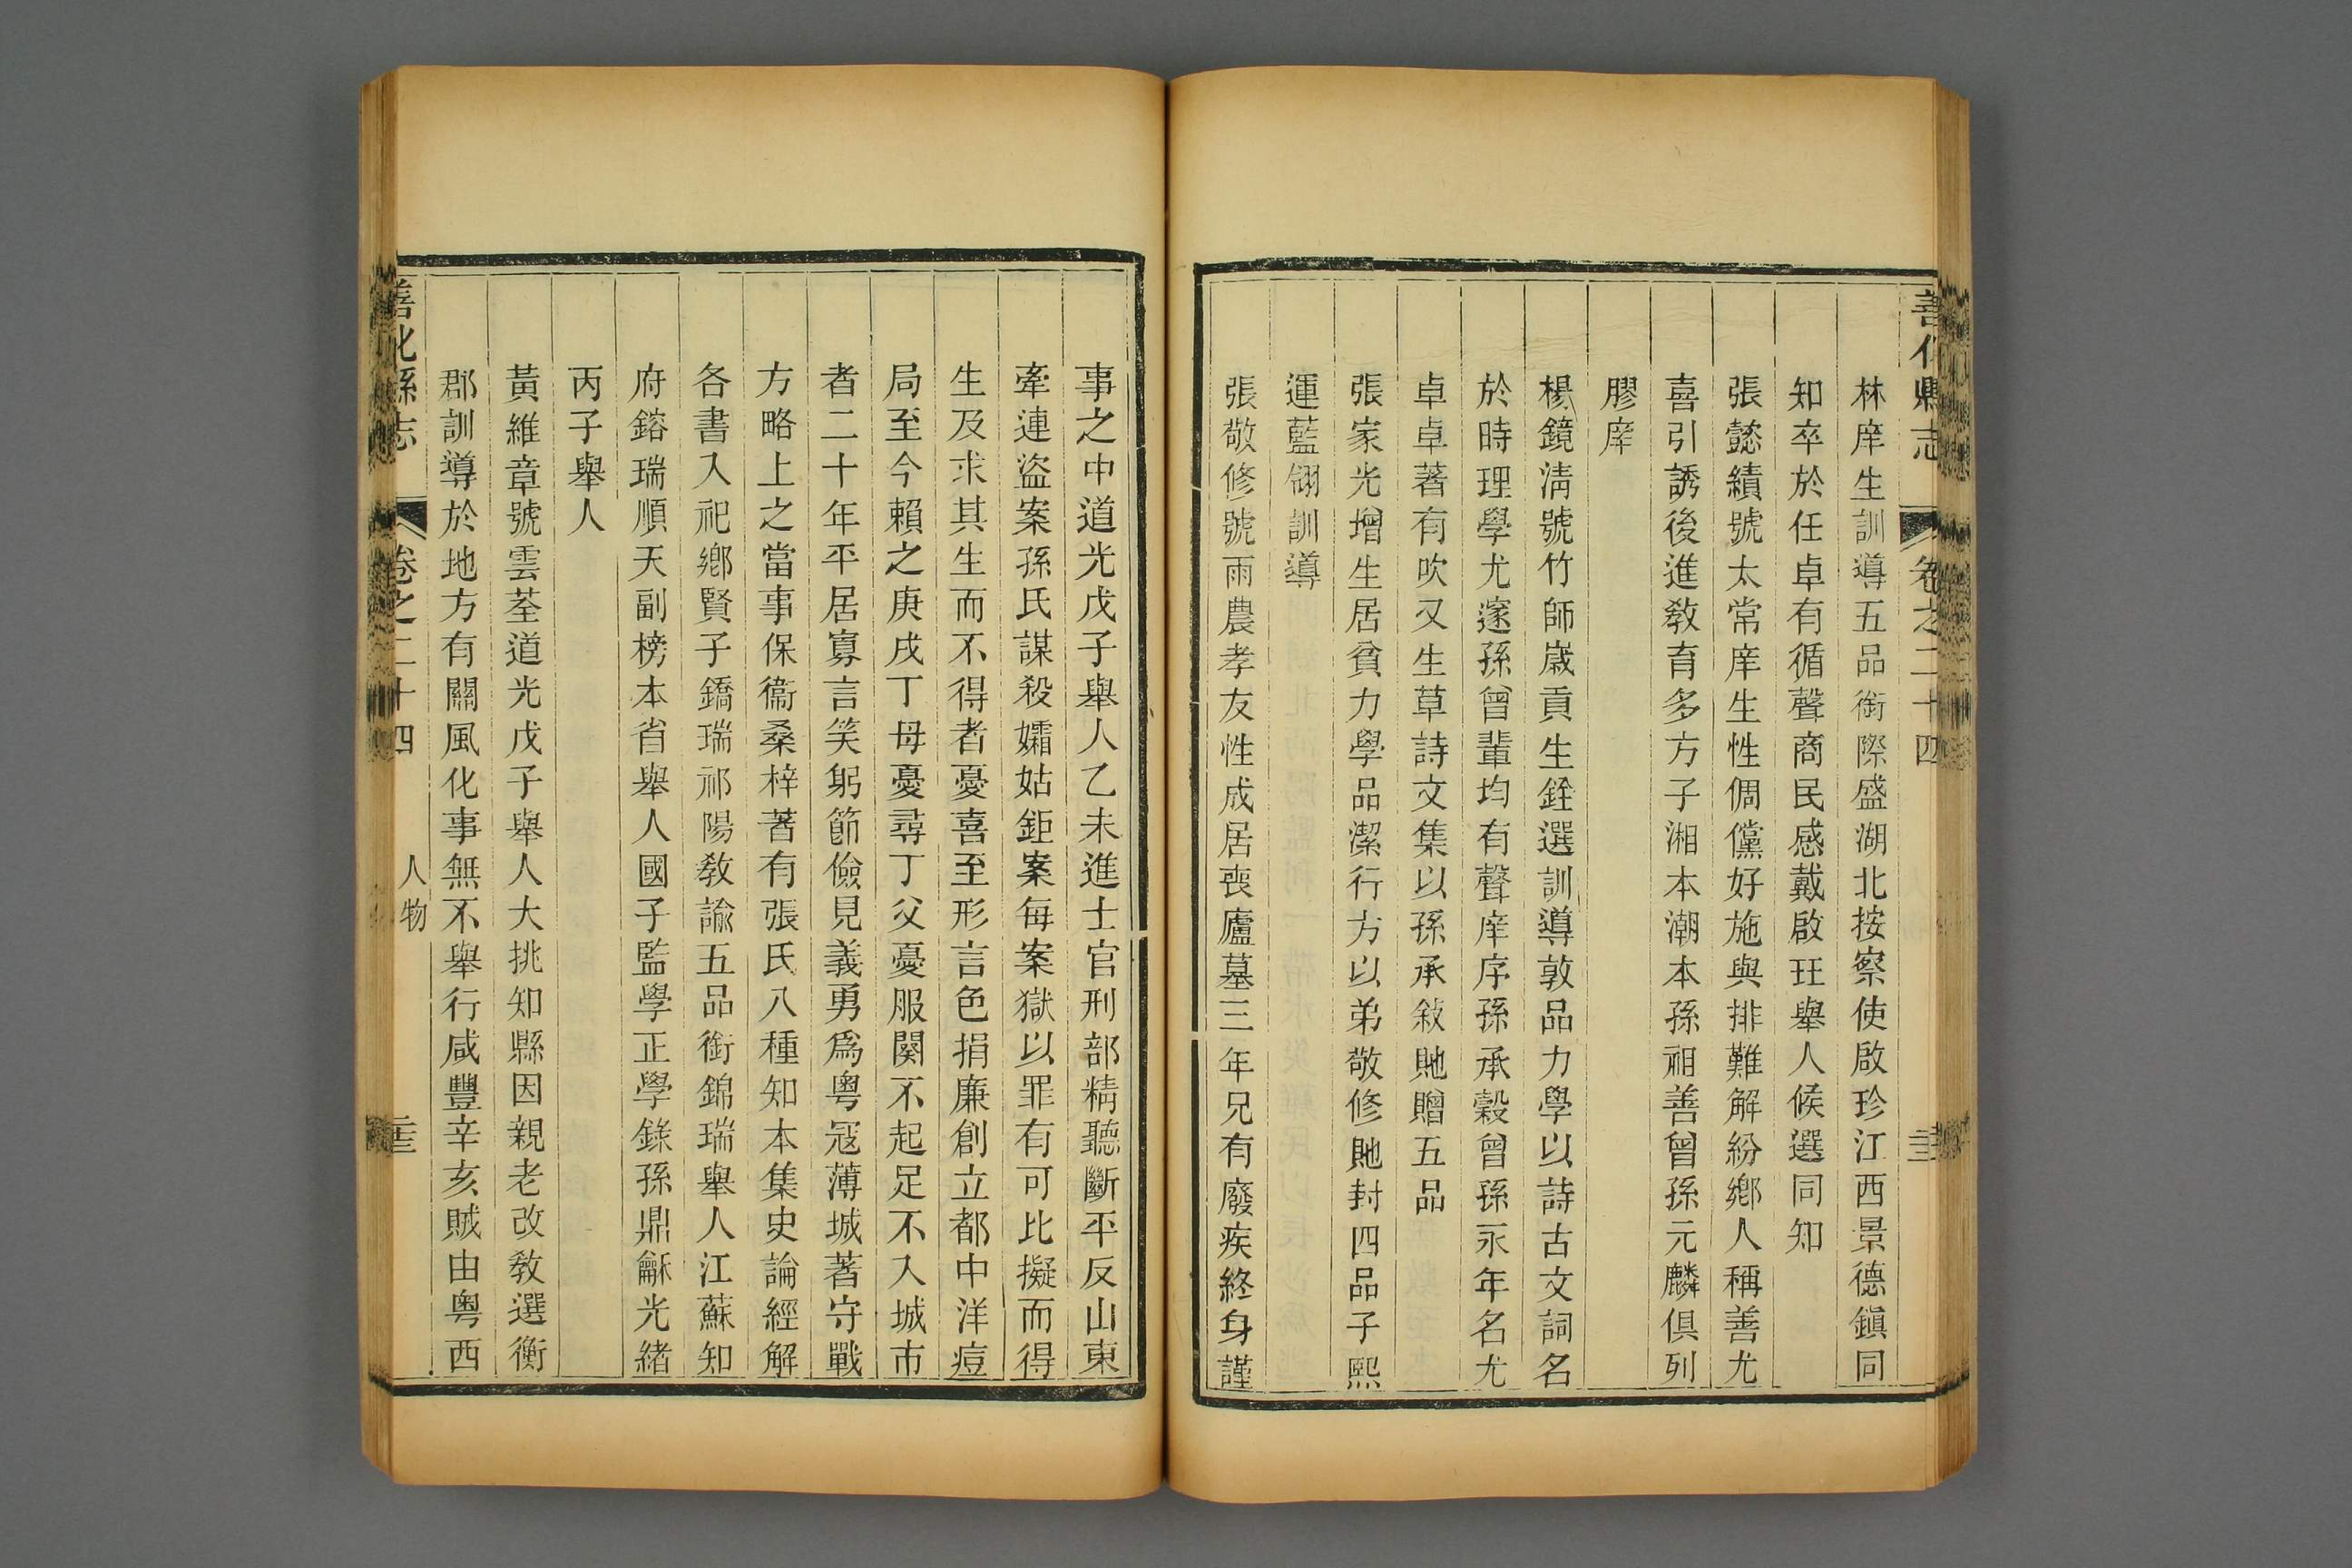 善化縣志
卷之二十四
林庠生訓導五品銜際盛湖北按察使啟珍江西景德鎭同
知卒於任卓有循聲商民感戴啟玨舉人候選同知
張懿績號太常庠生性倜儻好施與排難解紛鄉人稱善尤
喜引誘後進敎育多方子湘本潮本孫祖善曾孫元麟俱列
膠庠
楊鏡淸號竹師歲貢生銓選訓導敦品力學以詩古文詞名
於時理學尤邃孫曾輩均有聲庠序孫承穀曾孫永年名尤
卓卓著有吹又生草詩文集以孫承敍貤贈五品
張家光增生居貧力學品潔行方以弟敬修貤封四品子熙
運藍翎訓導
張敬修號雨農孝友性成居喪廬墓三年兄有廢疾終身謹
事之中道光戊子舉人乙未進士官刑部精聽斷平反山東
牽連盜案孫氏謀殺孀姑鉅案每案獄以罪有可比擬而得
生及求其生而不得者憂喜至形言色捐廉創立都中洋痘
局至今賴之庚戌丁母憂尋丁父憂服闋不起足不入城市
者二十年平居寡言笑躬節儉見義勇爲粵寇薄城著守戰
方略上之當事保衞桑梓著有張氏八種知本集史論經解
各書入祀鄉賢子鐍瑞祁陽敎諭五品銜錦瑞舉人江蘇知
府鎔瑞順天副榜本省舉人國子監學正學錄孫鼎龢光緖
丙子舉人
黃維章號雲荃道光戊子舉人大挑知縣因親老改敎選衡
郡訓導於地方有關風化事無不舉行咸豐辛亥賊由粵西
善化縣志
卷之二十四
人物